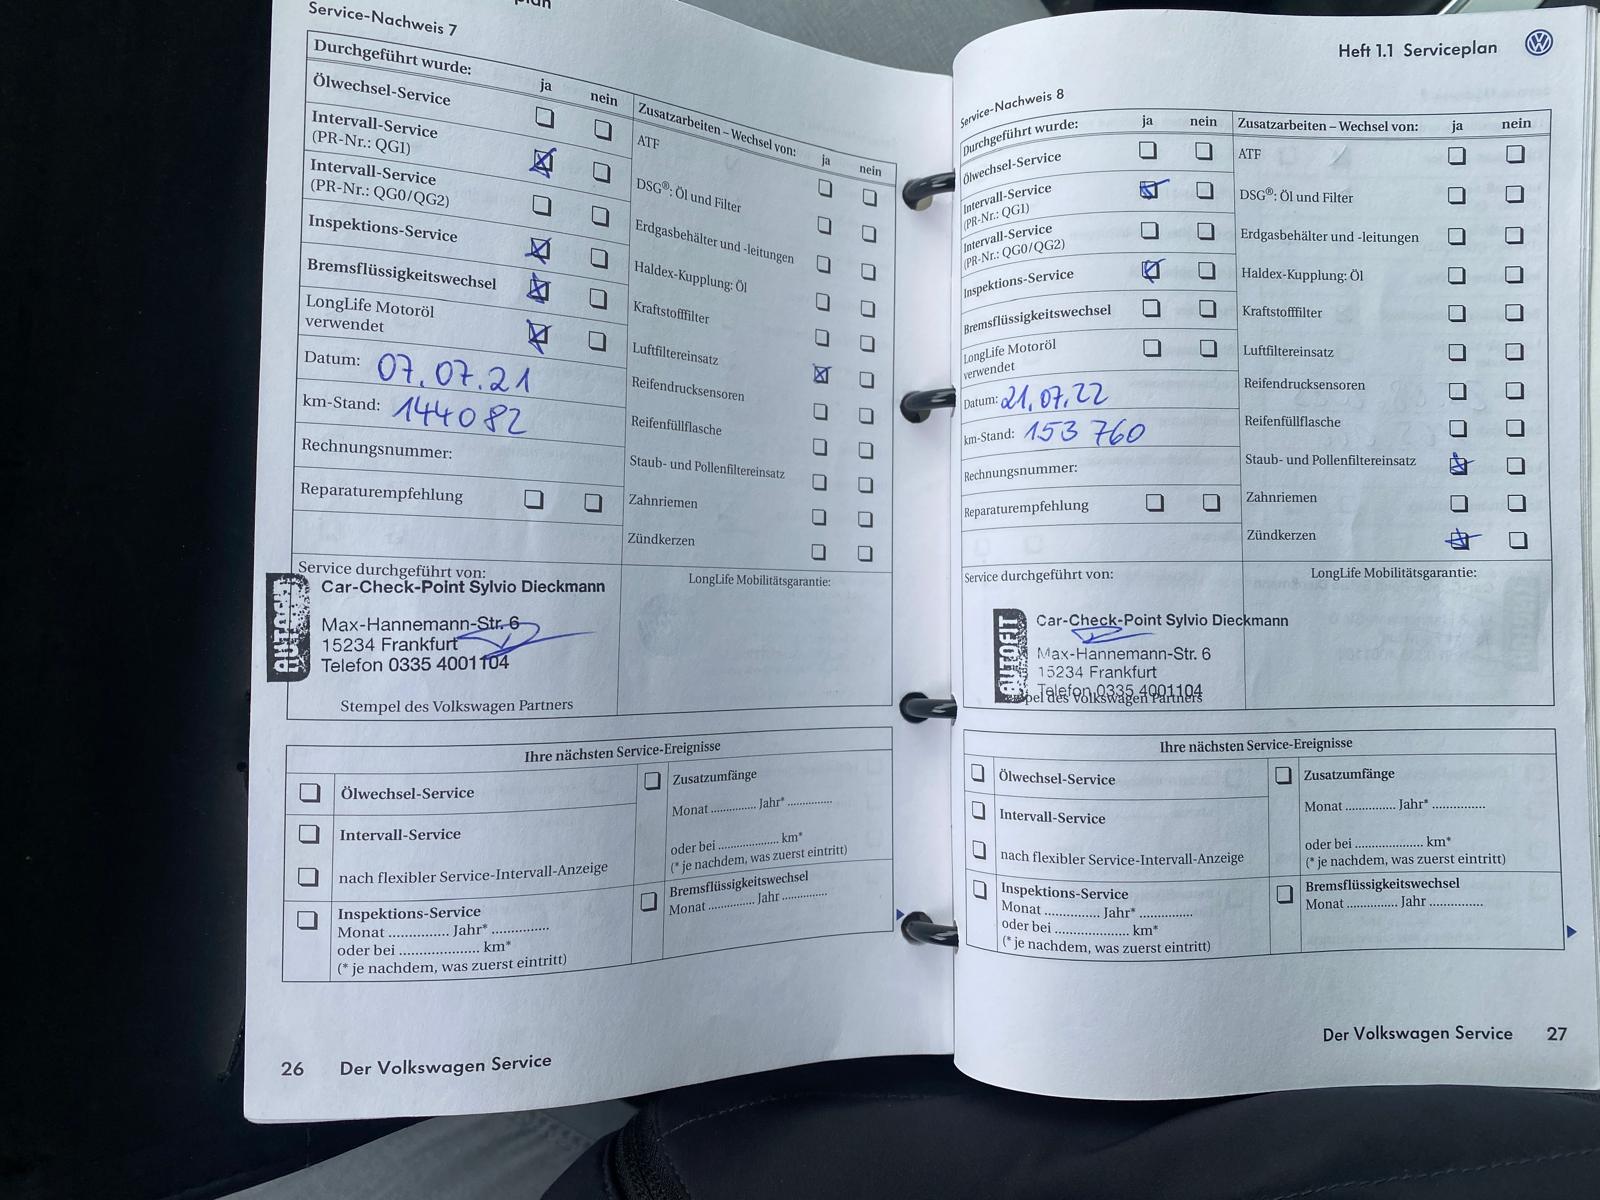 plan
Service-Nachweis 7
Durchgeführt wurde:
ja
nein
Ölwechsel-Service
Intervall-Service
(PR-Nr.: QG1)
Intervall-Service
(PR-Nr.: QG0/QG2)
Inspektions-Service
Bremsflüssigkeitswechsel
LongLife Motoröl
verwendet
Datum: 07.07.21
km-Stand: 144082
Rechnungsnummer:
Reparaturempfehlung
Zusatzarbeiten – Wechsel von:
ja
nein
ATF
DSG®: Öl und Filter
Erdgasbehälter und -leitungen
Haldex-Kupplung: Öl
Kraftstofffilter
Luftfiltereinsatz
Reifendrucksensoren
Reifenfüllflasche
Staub- und Pollenfiltereinsatz
Zahnriemen
Zündkerzen
Service durchgeführt von:
AUTOFIT
Car-Check-Point Sylvio Dieckmann
Max-Hannemann-Str. 6
15234 Frankfurt
Telefon 0335 4001104
Stempel des Volkswagen Partners
LongLife Mobilitätsgarantie:
Ihre nächsten Service-Ereignisse
Ölwechsel-Service
Intervall-Service
nach flexibler Service-Intervall-Anzeige
Inspektions-Service
Monat ............... Jahr* ..............
oder bei .................... km*
(* je nachdem, was zuerst eintritt)
Zusatzumfänge
Monat ............ Jahr* ............
oder bei .................... km*
(* je nachdem, was zuerst eintritt)
Bremsflüssigkeitswechsel
Monat ............ Jahr ............
26 Der Volkswagen Service
Heft 1.1 Serviceplan
Service-Nachweis 8
Durchgeführt wurde:
ja
nein
Ölwechsel-Service
Intervall-Service
(PR-Nr.: QG1)
Intervall-Service
(PR-Nr.: QG0/QG2)
Inspektions-Service
Bremsflüssigkeitswechsel
LongLife Motoröl
verwendet
Datum: 21.07.22
km-Stand: 153 760
Rechnungsnummer:
Reparaturempfehlung
Zusatzarbeiten – Wechsel von:
ja
nein
ATF
DSG®: Öl und Filter
Erdgasbehälter und -leitungen
Haldex-Kupplung: Öl
Kraftstofffilter
Luftfiltereinsatz
Reifendrucksensoren
Reifenfüllflasche
Staub- und Pollenfiltereinsatz
Zahnriemen
Zündkerzen
Service durchgeführt von:
AUTOFIT
Car-Check-Point Sylvio Dieckmann
Max-Hannemann-Str. 6
15234 Frankfurt
Telefon 0335 4001104
des Volkswagen Partners
LongLife Mobilitätsgarantie:
Ihre nächsten Service-Ereignisse
Ölwechsel-Service
Intervall-Service
nach flexibler Service-Intervall-Anzeige
Inspektions-Service
Monat ............... Jahr* ..............
oder bei .................... km*
(* je nachdem, was zuerst eintritt)
Zusatzumfänge
Monat ............. Jahr* ..............
oder bei .................... km*
(* je nachdem, was zuerst eintritt)
Bremsflüssigkeitswechsel
Monat ............. Jahr ..............
Der Volkswagen Service 27